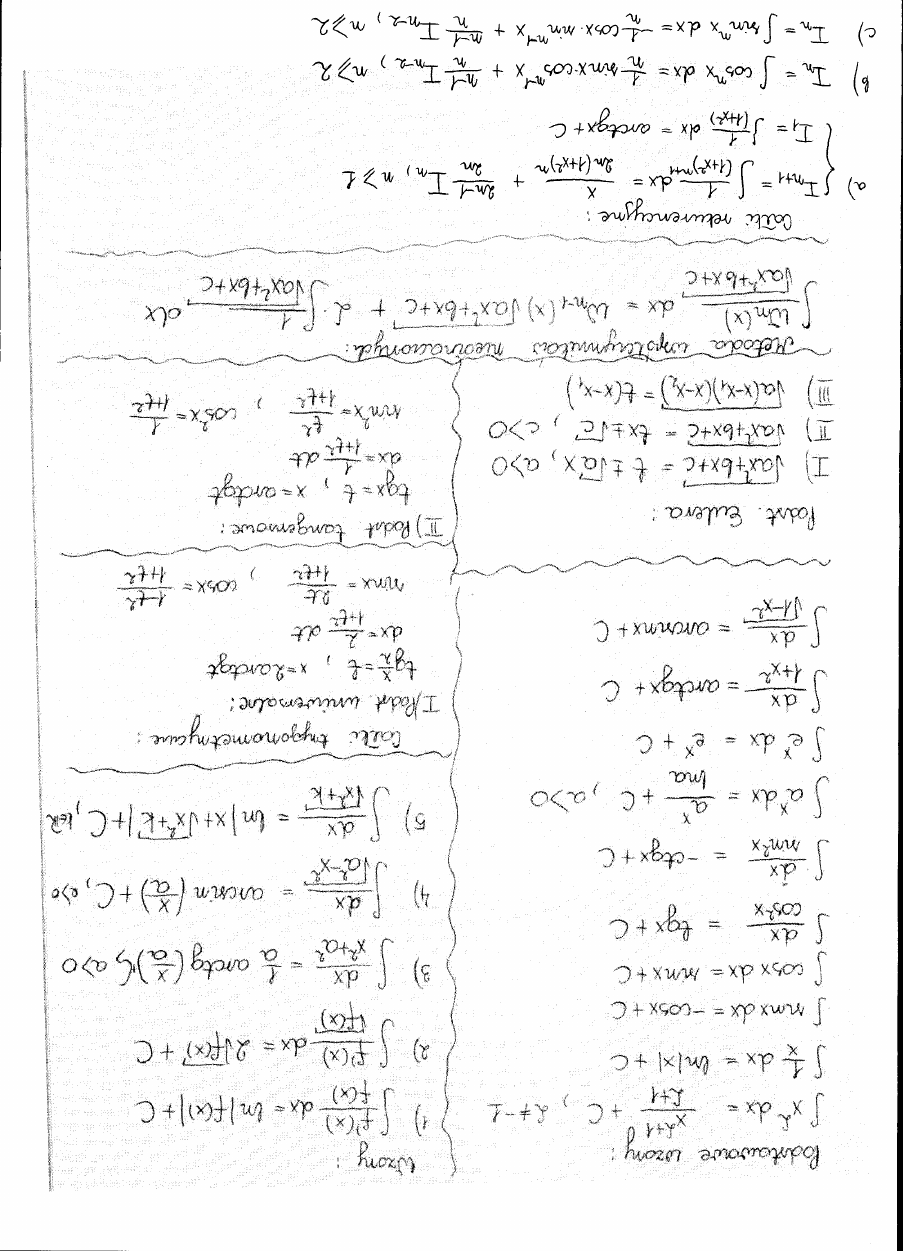 Podstawowe wzory:
∫ x^α dx = x^(α+1)/(α+1) + C, α ≠ -1
∫ 1/x dx = ln|x| + C
∫ sinx dx = -cosx + C
∫ cosx dx = sinx + C
∫ dx/cos²x = tgx + C
∫ dx/sin²x = -ctgx + C
∫ a^x dx = a^x/lna + C, a>0
∫ e^x dx = e^x + C
∫ dx/(1+x²) = arctgx + C
∫ dx/√(1-x²) = arcsinx + C
Podst. Eulera:
I) √(ax²+bx+c) = t ± √a x, a>0
II) √(ax²+bx+c) = tx ± √c, c>0
III) √(a(x-x₁)(x-x₂)) = t(x-x₁)
Wzory:
1) ∫ f'(x)/f(x) dx = ln|f(x)| + C
2) ∫ f'(x)/√f(x) dx = 2√f(x) + C
3) ∫ dx/(x²+a²) = 1/a arctg(x/a) + C, a>0
4) ∫ dx/√(a²-x²) = arcsin(x/a) + C, a>0
5) ∫ dx/√(x²+k) = ln|x+√(x²+k)| + C, k∈R
Całki trygonometryczne:
I) Podst uniwersalne:
tg x/2 = t, x = 2arctgt
dx = 2/(1+t²) dt
sinx = 2t/(1+t²), cosx = (1-t²)/(1+t²)
II) Podst tangensowe:
tgx = t, x = arctgt
dx = 1/(1+t²) dt
sin²x = t²/(1+t²), cos²x = 1/(1+t²)
Metoda współczynników nieoznaczonych:
∫ Wn(x)/√(ax²+bx+c) dx = Wn-1(x)√(ax²+bx+c) + λ·∫ 1/√(ax²+bx+c) dx
Całki rekurencyjne:
a) { I_(n+1) = ∫ 1/(1+x²)^(n+1) dx = x/(2n(1+x²)^n) + (2n-1)/2n I_n, n ≥ 1
I₁ = ∫ 1/(1+x²) dx = arctgx + C
b) I_n = ∫ cos^n x dx = 1/n sinx·cos^(n-1) x + (n-1)/n I_(n-2), n ≥ 2
c) I_n = ∫ sin^n x dx = -1/n cosx·sin^(n-1) x + (n-1)/n I_(n-2), n ≥ 2